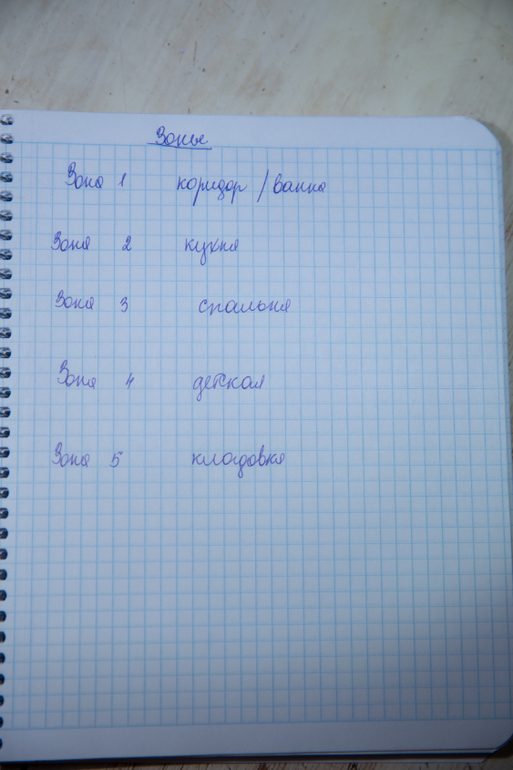 Зоны
Зона 1 коридор / ванна
Зона 2 кухня
Зона 3 спальня
Зона 4 детская
Зона 5 кладовка